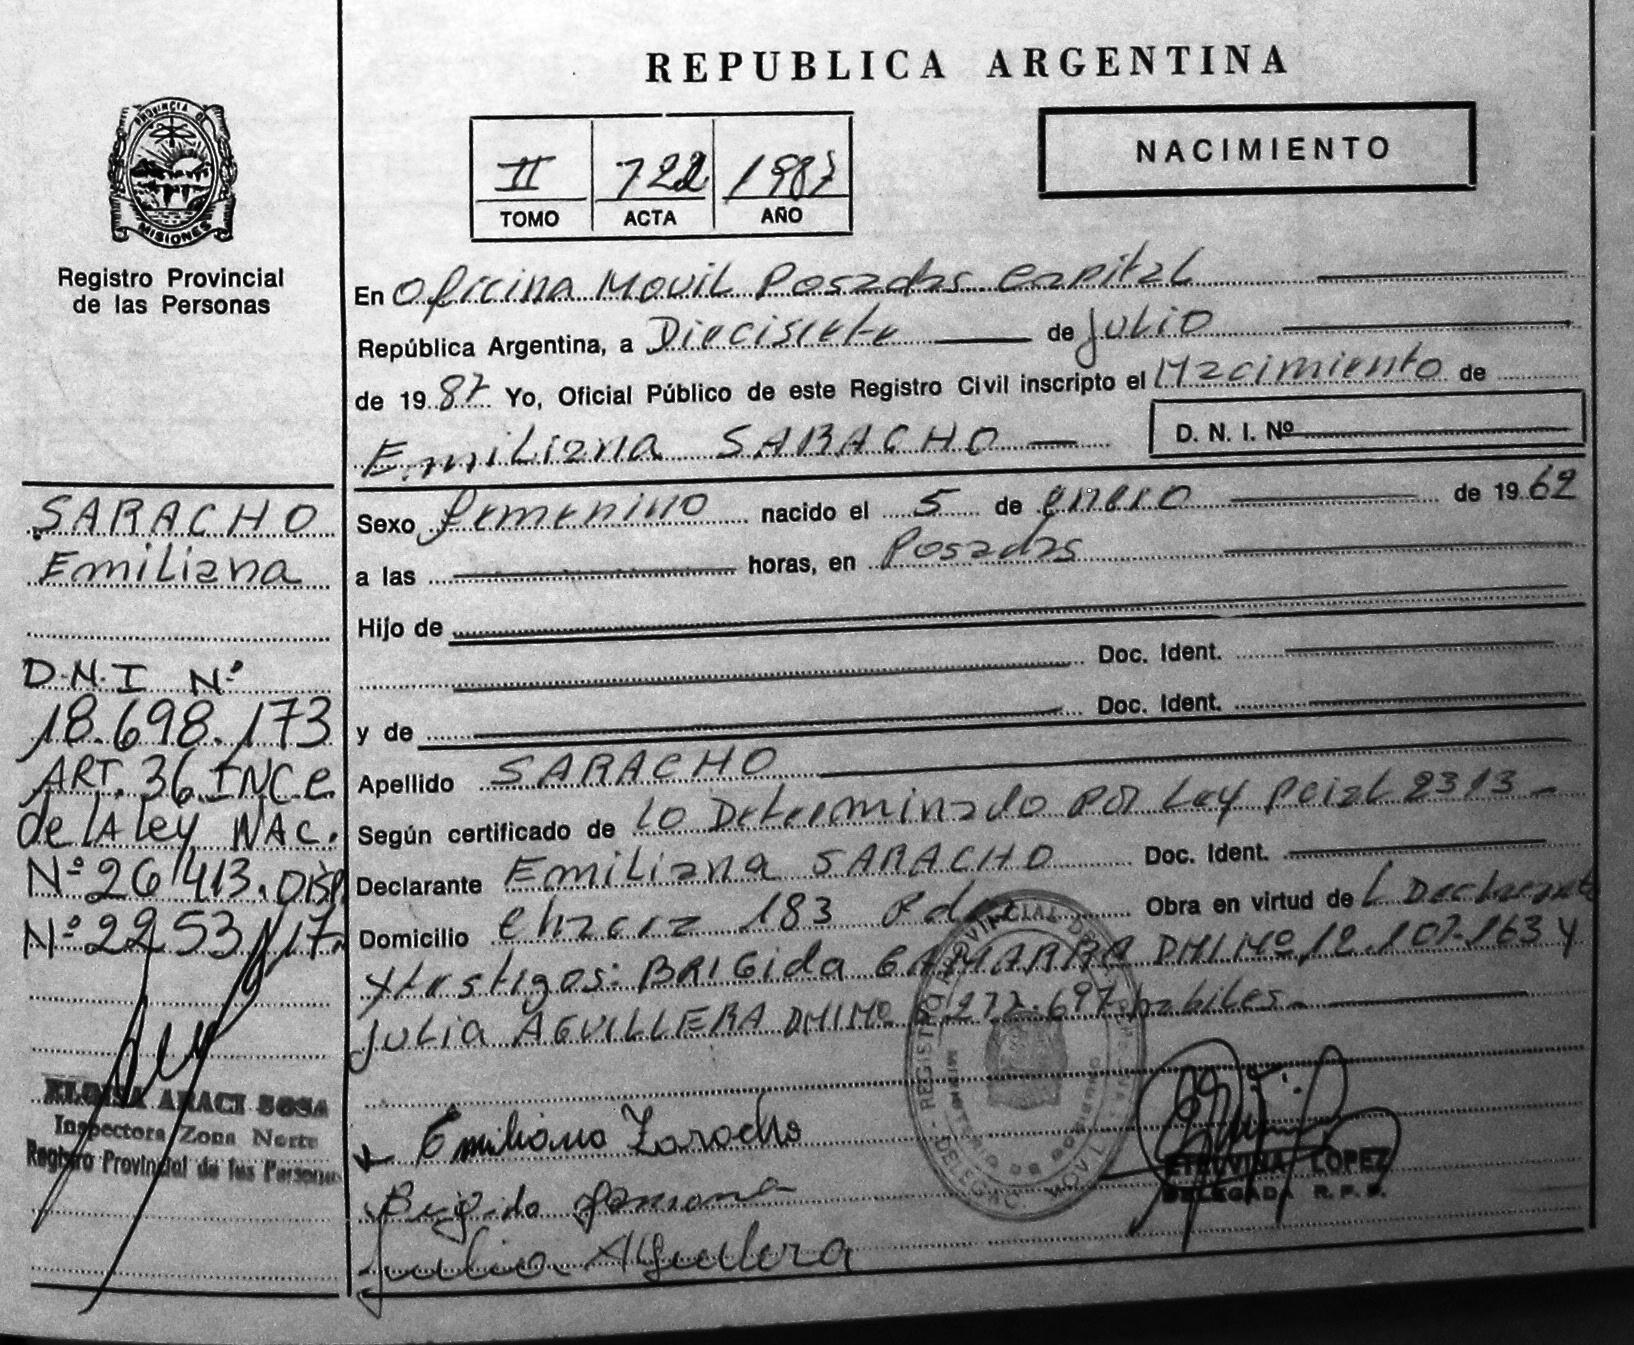 REPUBLICA ARGENTINA
PROVINCIA DE
MISIONES
Registro Provincial
de las Personas
II 722 1987
TOMO ACTA AÑO
NACIMIENTO
En Oficina Movil Posadas Capital
República Argentina, a Diecisiete de Julio
de 1987 Yo, Oficial Público de este Registro Civil inscripto el Nacimiento de
Emiliana SARACHO
D. N. I. Nº
Sexo femenino nacido el 5 de enero de 1962
a las horas, en Posadas
Hijo de
Doc. Ident.
y de Doc. Ident.
Apellido SARACHO
Según certificado de lo Determinado por Ley Pcial 2313
Declarante Emiliana SARACHO Doc. Ident.
Domicilio Chacra 183 Pdas Obra en virtud de L Declarante
y testigos: BRIGida GAMARRA DNI Nº 12.107.163 y
Julia AGUILLERA DNI Nº 6.272.697 habiles
Emiliana Zaracho
Brigida Gamarra
Julia Aguilera
ETELVINA LOPEZ
DELEGADA R.P.P.
SARACHO
Emiliana
D.N.I Nº
18.698.173
ART. 36 INC e
de LA Ley NAC.
Nº 26413. DISP.
Nº 2253/17
ELOISA ARACI SOSA
Inspectora Zona Norte
Registro Provincial de las Personas